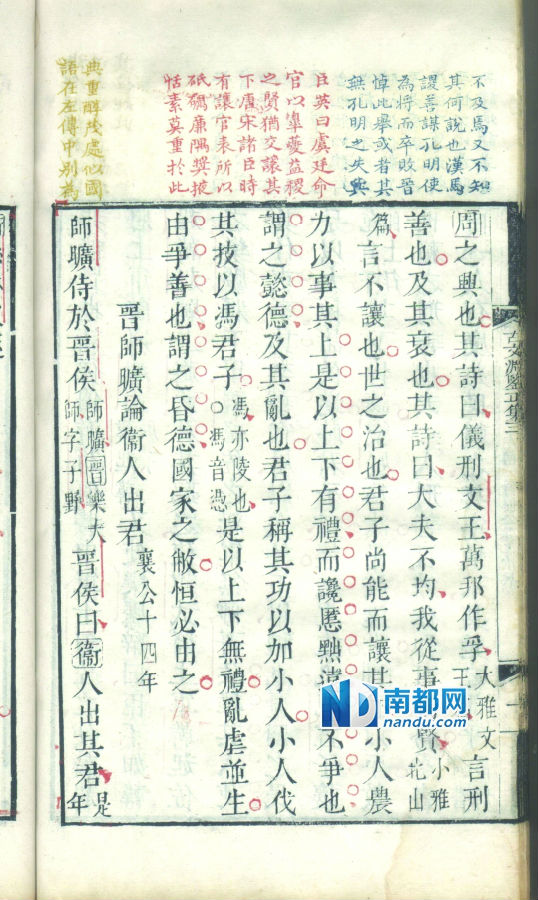 不及焉又不知
其何說也漢馬
謖善謀孔明使
為將而卒敗晉
悼此舉或者其
無孔明之失與
臣英曰虞廷命
官以皐夔益稷
之賢猶交讓其
下唐宋諸臣時
有讓官表所以
砥礪廉隅奬掖
恬素莫重於此
典重醇茂處似國
語在左傳中别為
周之興也其詩曰儀刑文王萬邦作孚大雅文王言刑
善也及其衰也其詩曰大夫不均我從事賢小雅北山
篇言不讓也世之治也君子尚能而讓其小人農
力以事其上是以上下有禮而讒慝黜遠不爭也
謂之懿德及其亂也君子稱其功以加小人小人伐
其技以馮君子馮亦陵也○馮音憑是以上下無禮亂虐並生
由爭善也謂之昏德國家之敝恒必由之
晉師曠論衞人出君襄公十四年
師曠侍於晉侯師曠晉樂大師字子野晉侯曰衞人出其君是年
ND南都网
nandu.com